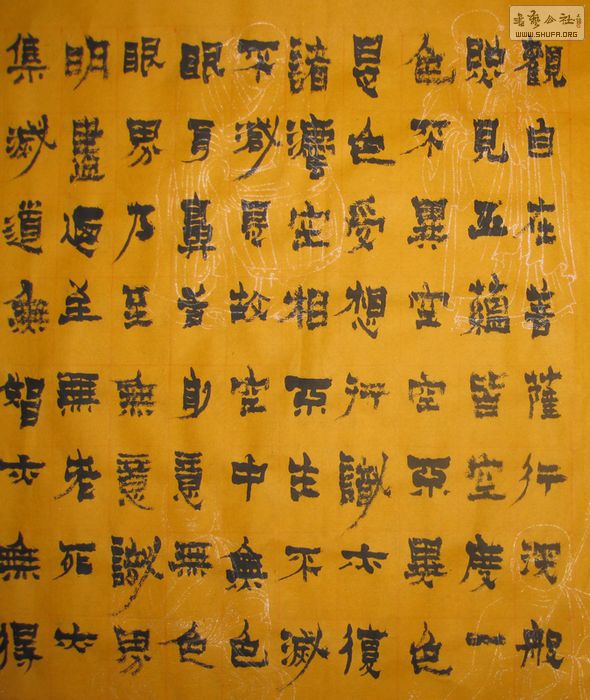 觀自在菩薩行深般
照見五蘊皆空度一
色不異空空不異色
是色受想行識亦復
諸灋空相不生不滅
不減是故空中無色
眼耳鼻舌身意無色
眼界乃至無意識界
明盡迺至無老死亦
集滅道無智亦無得
書藝公社
WWW.SHUFA.ORG